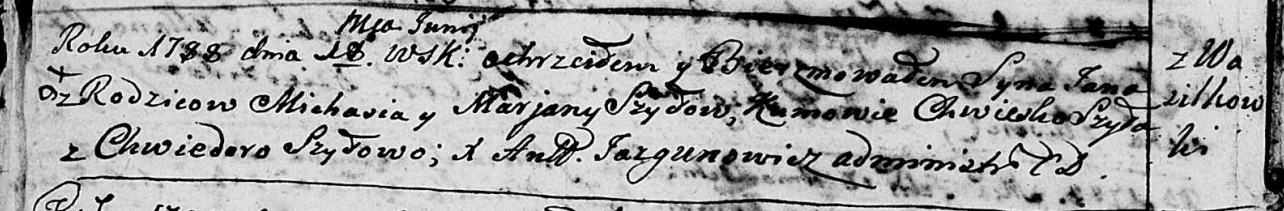 Mca Junij
Roku 1788 dnia 18. WSK: ochrzciłem y Bierzmowałem Syna Jana
z Rodzicow Michasia y Marjany Szyłow, Kumowie Chwiesko Szyło
z Chwiedoro Szyłowo; X Antt. Jazgunowicz administr
z Wa
silkow
ki